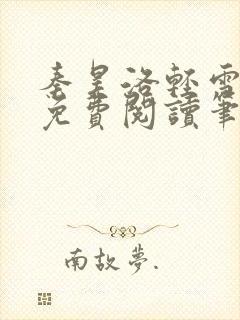 秦昊洛輕雪
免費閱讀筆
南故夢.